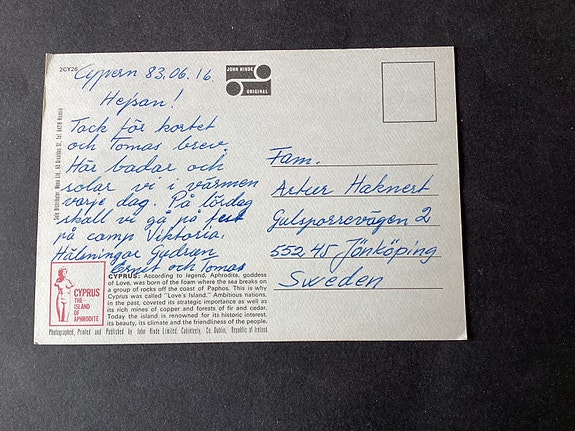 2CY26
Cypern 83.06.16.
Hejsan!
Tack för kortet
och Tomas brev.
Här badar och
solar vi i värmen
varje dag. På lördag
skall vi gå på fest
på camp Viktoria.
Hälsningar Gudrun
Ernst och Tomas
JOHN HINDE
ORIGINAL
Fam.
Artur Haknert
Gulsparrevägen 2
552 45 Jönköping
Sweden
CYPRUS
THE
ISLAND
OF
APHRODITE
CYPRUS: According to legend, Aphrodite, goddess
of Love, was born of the foam where the sea breaks on
a group of rocks off the coast of Paphos. This is why
Cyprus was called "Love's Island." Ambitious nations,
in the past, coveted its strategic importance as well as
its rich mines of copper and forests of fir and cedar.
Today the island is renowned for its historic interest,
its beauty, its climate and the friendliness of the people.
Photographed, Printed and Published by John Hinde Limited, Cabinteely, Co. Dublin, Republic of Ireland